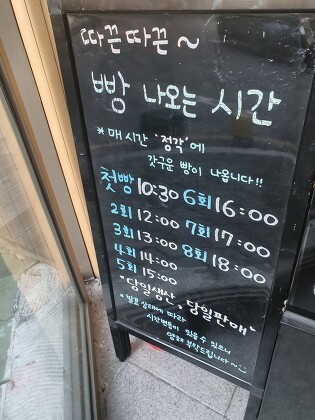 따끈따끈~
빵 나오는 시간
* 매 시간 '정각'에
갓구운 빵이 나옵니다!!
첫빵 10:30 6회 16:00
2회 12:00 7회 17:00
3회 13:00 8회 18:00
4회 14:00
5회 15:00
"당일생산, 당일판매"
*발효 상태에 따라
시간변동이 있을 수 있으니
양해 부탁드립니다~